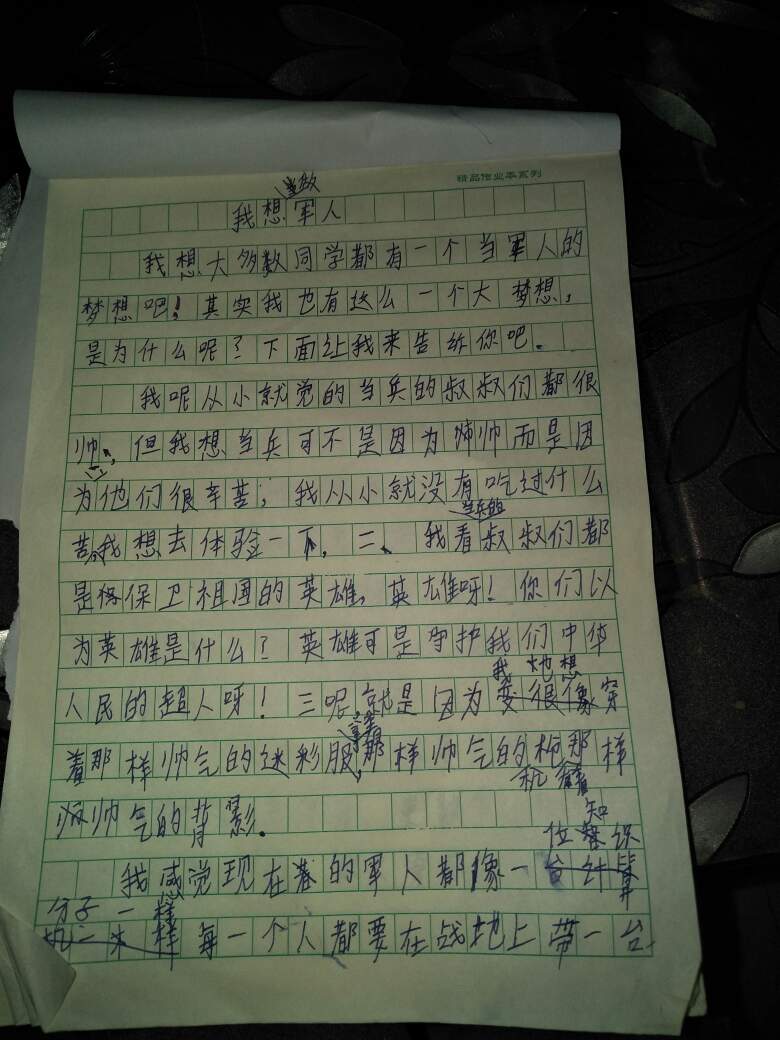 精品作业本系列
当做
我想军人
我想大多数同学都有一个当军人的
梦想吧！其实我也有这么一个大梦想，
是为什么呢？下面让我来告诉你吧。
我呢从小就觉的当兵的叔叔们都很
帅，但我想当兵可不是因为帅而是因
为他们很辛苦；我从小就没有吃过什么
当兵的
苦。我想去体验一下，二、我看叔叔们都
是保卫祖国的英雄，英雄呀！你们以
为英雄是什么？英雄可是守护我们中华
我也想
人民的超人呀！三呢，就是因为变很像穿
着那样帅气的迷彩服，那样帅气的枪那样
帅气的背影。
位知识
我感觉现在的军人都像一台
分子一样
每一个人都要在战地上带一台